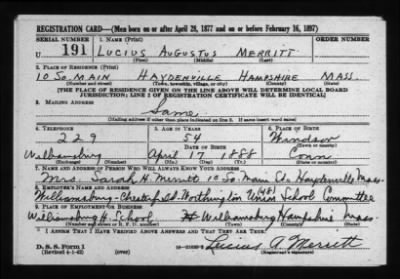 REGISTRATION CARD—(Men born on or after April 28, 1877 and on or before February 16, 1897)
SERIAL NUMBER 1. NAME (Print) ORDER NUMBER
U 191 LUCIUS AUGUSTUS MERRITT
(First) (Middle) (Last)
2. PLACE OF RESIDENCE (Print)
10 SO. MAIN HAYDENVILLE HAMPSHIRE MASS.
(Number and street) (Town, township, village, or city) (County) (State)
[THE PLACE OF RESIDENCE GIVEN ON THE LINE ABOVE WILL DETERMINE LOCAL BOARD
JURISDICTION; LINE 2 OF REGISTRATION CERTIFICATE WILL BE IDENTICAL]
3. MAILING ADDRESS
Same
[Mailing address if other than place indicated on line 2. If same insert word same]
4. TELEPHONE 5. AGE IN YEARS 6. PLACE OF BIRTH
229 54 Windsor
DATE OF BIRTH (Town or county)
Williamsburg April 17 1888 Conn
(Exchange) (Number) (Mo.) (Day) (Yr.) (State or country)
7. NAME AND ADDRESS OF PERSON WHO WILL ALWAYS KNOW YOUR ADDRESS
Mrs. Sarah H. Merritt 10 So. Main St. Haydenville Mass.
8. EMPLOYER'S NAME AND ADDRESS
Williamsburg-Chesterfield-Worthington Union (48) School Committee
9. PLACE OF EMPLOYMENT OR BUSINESS
Williamsburg H. School Williamsburg Hampshire Mass
(Number and street or R. F. D. number) (Town) (County) (State)
I AFFIRM THAT I HAVE VERIFIED ABOVE ANSWERS AND THAT THEY ARE TRUE.
D. S. S. Form 1
(Revised 4-1-42) (over) Lucius A. Merritt